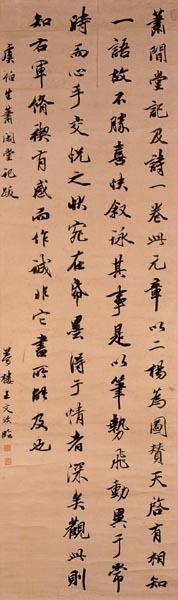 蕭閒堂記及詩一卷此元章以二楊為圖贊天啓有相知
一語故不勝喜快叙詠其事是以筆勢飛動異于常
時而心手交悦之狀宛在帋墨得于情者深矣觀此則
知右軍脩禊有感而作誠非它書所能及也
虞伯生蕭閒堂記跋
夢樓王文治臨